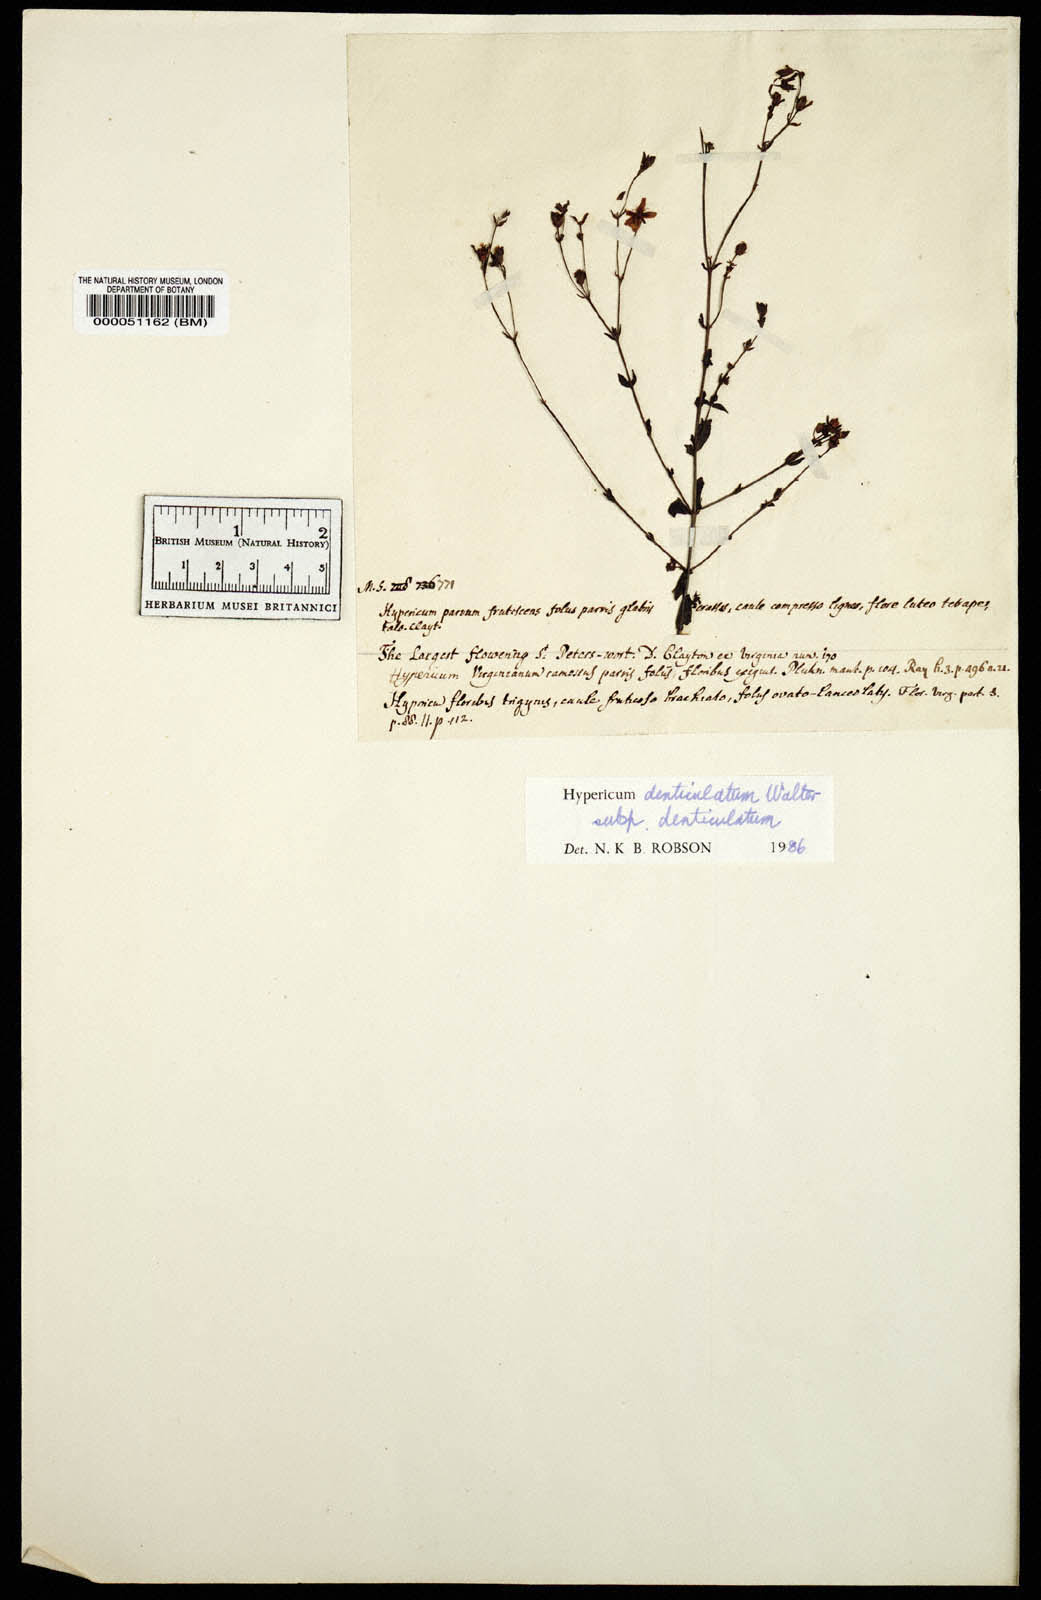 THE NATURAL HISTORY MUSEUM, LONDON
DEPARTMENT OF BOTANY
000051162 (BM)
1 2
BRITISH MUSEUM (NATURAL HISTORY)
1 2 3 4 5
HERBARIUM MUSEI BRITANNICI
M.S. 736 771
Hypericum parvum frutescens foliis parvis glabris crassis, caule compresso ligneo, flore luteo tetapet,
Clayt.
The Largest flowering St Peters-wort. D. Clayton ex Virginia num. 170
Hypericum Virginianum ramosus parvis foliis, floribus exiguis. Plukn. mant. p. 104. Ray h. 3. p. 496 n. 21.
Hypericum floribus trigynis, caule fruticoso brachiato, foliis ovato-lanceolatis. Flor. Virg. part.
p. 88. II. p. 112.
Hypericum denticulatum Walter
subsp. denticulatum
Det. N. K B. ROBSON 1986